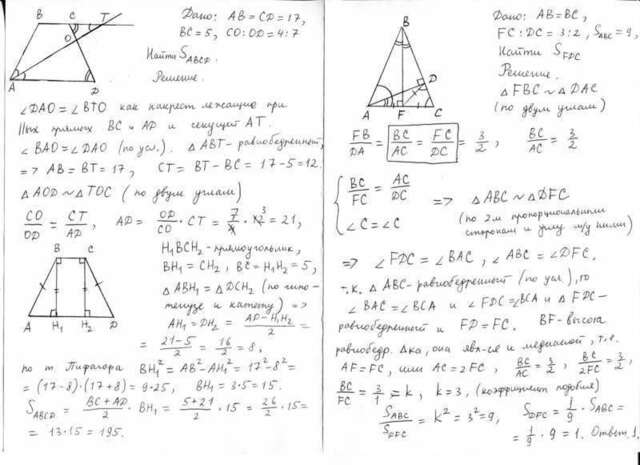 B C T
O
A D
Дано: AB = CD = 17,
BC = 5, CO:OD = 4:7
Найти S ABCD
Решение.
∠DAO = ∠BTO как накрест лежащие при
||ных прямых BC и AD и секущей AT.
∠BAO = ∠DAO (по усл.). △ABT - равнобедренный,
=> AB = BT = 17, CT = BT - BC = 17 - 5 = 12.
△AOD ~ △TOC (по двум углам)
CO/OD = CT/AD, AD = OD/CO · CT = 7/4 · 12 3 = 21,
B C
A H₁ H₂ D
H₁BCH₂ - прямоугольник,
BH₁ = CH₂, BC = H₁H₂ = 5,
△ABH₁ = △DCH₂ (по гипо-
тенузе и катету) =>
AH₁ = DH₂ = (AD - H₁H₂)/2 =
= (21-5)/2 = 16/2 = 8,
по т. Пифагора BH₁² = AB² - AH₁² = 17² - 8² =
= (17-8)·(17+8) = 9·25, BH₁ = 3·5 = 15.
S ABCD = (BC + AD)/2 · BH₁ = (5+21)/2 · 15 = 26/2 · 15 =
= 13·15 = 195.
B
D
A F C
Дано: AB = BC,
FC : DC = 3:2, S ABC = 9,
Найти S FDC
Решение.
△FBC ~ △DAC
(по двум углам)
FB/DA = BC/AC = FC/DC = 3/2, BC/AC = 3/2
{ BC/FC = AC/DC => △ABC ~ △DFC
∠C = ∠C (по 2м пропорциональным
сторонам и углу м/у ними)
=> ∠FDC = ∠BAC, ∠ABC = ∠DFC.
т.к. △ABC - равнобедренный (по усл.), то
∠BAC = ∠BCA и ∠FDC = ∠BCA и △FDC -
равнобедренный и FD = FC. BF - высота
равнобедр. △ка, она явл-ся и медианой, т.е.
AF = FC, или AC = 2FC, BC/AC = 3/2, BC/2FC = 3/2,
BC/FC = 3/1 = k, k = 3, (коэффициент подобия)
S ABC/S FDC = k² = 3² = 9, S DFC = 1/9 · S ABC =
= 1/9 · 9 = 1. Ответ 1.